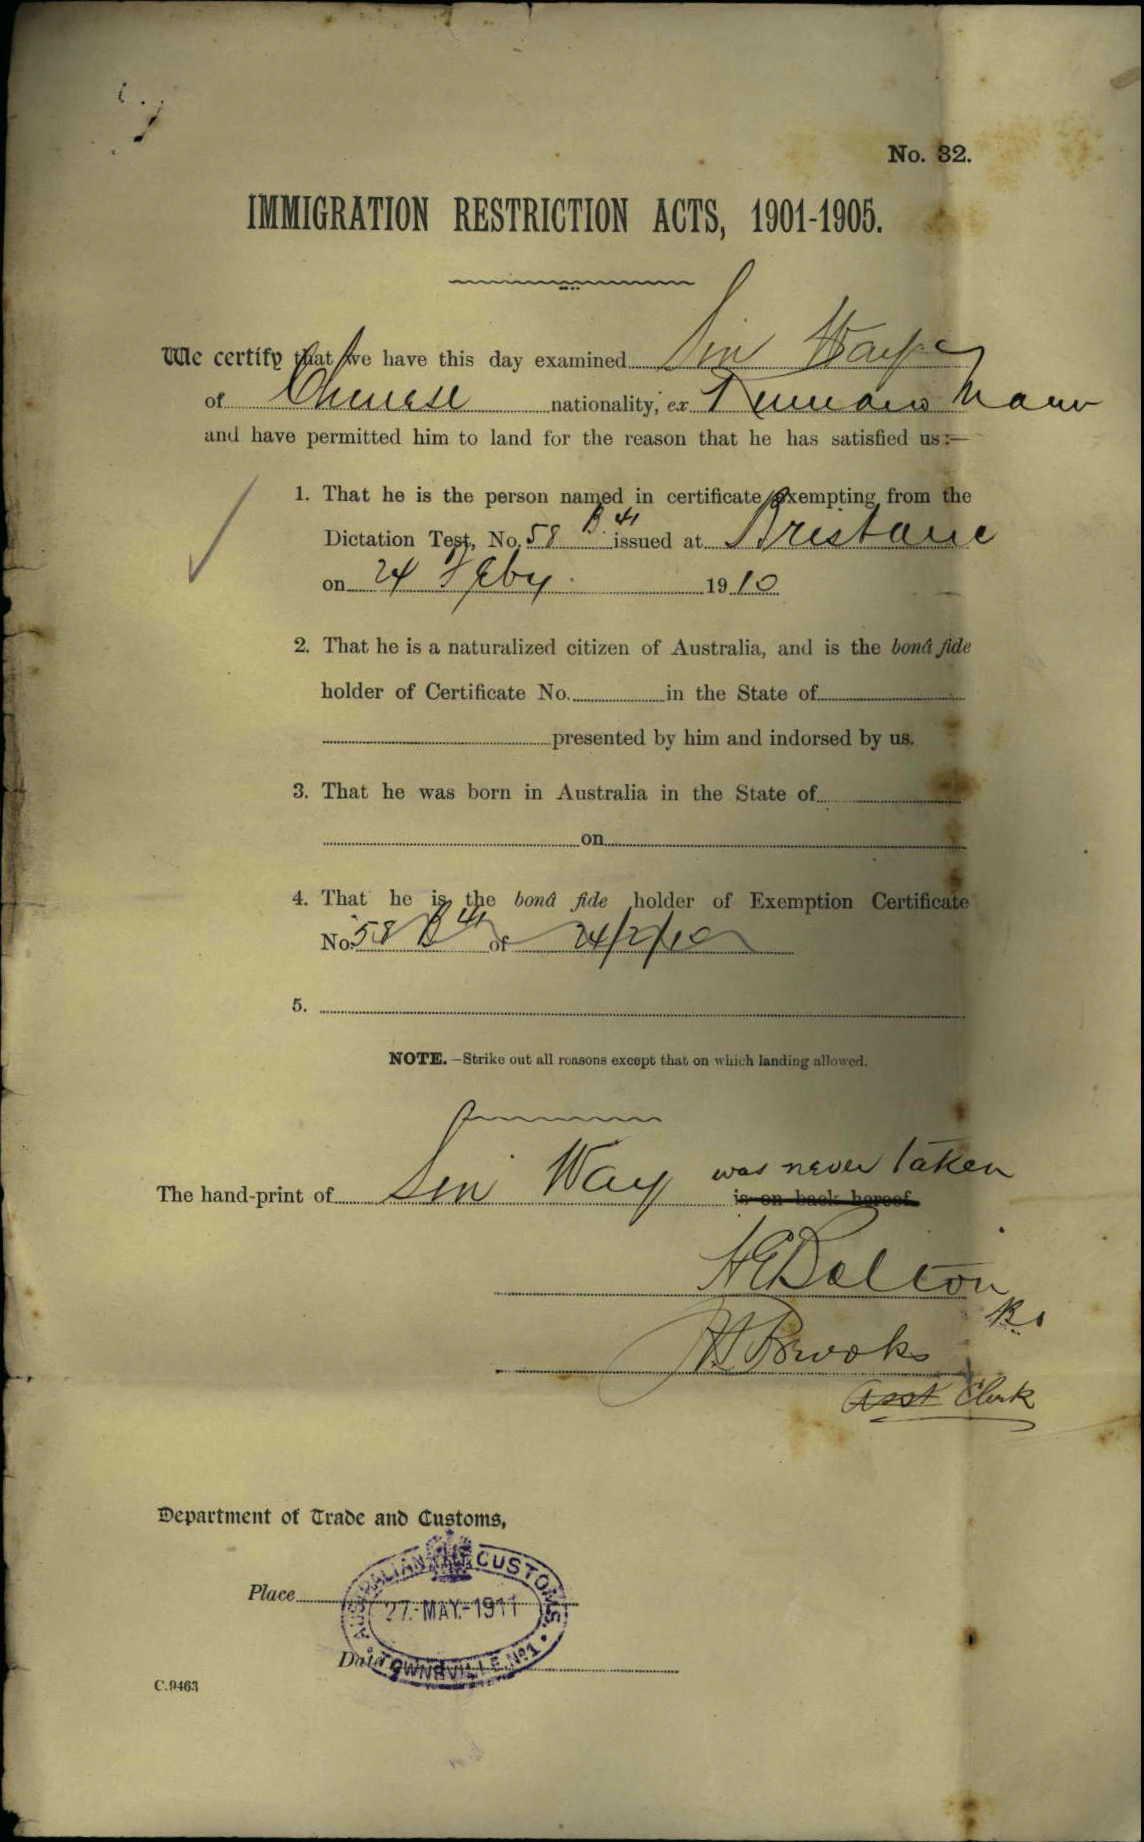 No. 32.
IMMIGRATION RESTRICTION ACTS, 1901-1905.
We certify that we have this day examined Sin Way
of Chinese nationality, ex Kumano Maru
and have permitted him to land for the reason that he has satisfied us:—
1. That he is the person named in certificate exempting from the
Dictation Test, No. 58 B 41 issued at Brisbane
on 24 Feby. 1910
2. That he is a naturalized citizen of Australia, and is the bonâ fide
holder of Certificate No. in the State of
presented by him and indorsed by us.
3. That he was born in Australia in the State of
on
4. That he is the bonâ fide holder of Exemption Certificate
No. 58 B 41 of 24/2/10
5.
NOTE.—Strike out all reasons except that on which landing allowed.
was never taken
The hand-print of Sin Way is on back hereof.
Bolton
Brooks
Asst Clerk
Department of Trade and Customs,
AUSTRALIAN CUSTOMS.
Place
27.-MAY.-1911
Date
TOWNSVILLE. No 1.
C.9463